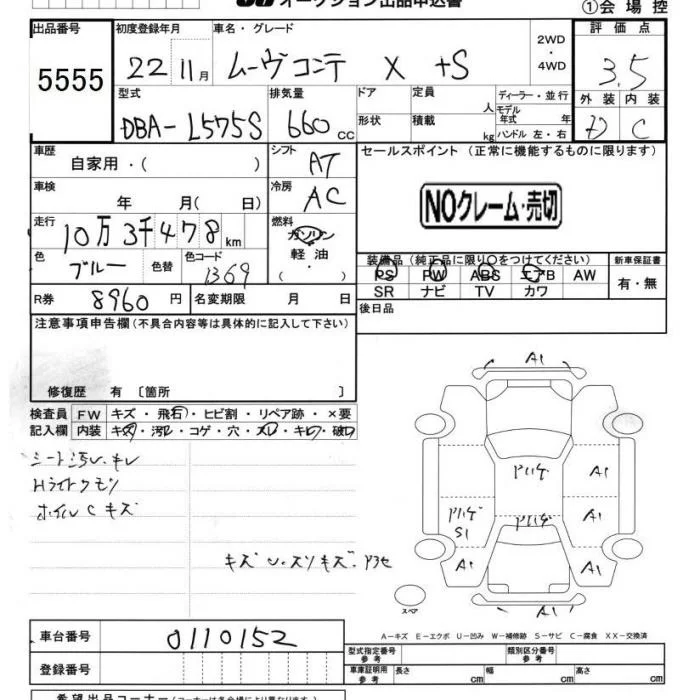 オークション出品申込書
①会場控
出品番号 初度登録年月 車名・グレード 2WD・4WD 評価点
5555 22 11月 ムーヴコンテ X +S 3.5
型式 排気量 ドア 定員 人 ディーラー・並行 外装 内装
DBA-L575S 660cc 形状 積載 kg モデル年式 年 ハンドル 左・右 D C
車歴 自家用・( ) シフト AT セールスポイント (正常に機能するものに限ります)
車検 年 月( 日) 冷房 AC
NOクレーム・売切
走行 10万3千478km 燃料 ガソリン・軽油・( )
色 ブルー 色替 色コード B69
装備品(純正品に限り○をつけてください) 新車保証書
PS PW ABS エアB AW 有・無
SR ナビ TV カワ
R券 8960円 名変期限 月 日 後日品
注意事項申告欄(不具合内容等は具体的に記入して下さい)
修復歴 有 〔箇所 〕
検査員 FW キズ・飛石・ヒビ割・リペア跡・×要
記入欄 内装 キズ・汚レ・コゲ・穴・スレ・キレ・破レ
シート汚レ・キレ
Hライトクモリ
ホイルCキズ
キズ U・スリキズ・アセ
A1
アハゲ A1
アハゲ S1 アハゲ A1
A1 A1
A1
スペア
A-キズ E-エクボ U-凹み W-補修跡 S-サビ C-腐食 XX-交換済
車台番号 0110152 型式指定番号 参考 類別区分番号 参考
登録番号 車庫証明用 参考 長さ cm 幅 cm 高さ cm
希望出品コーナー(コーナーは各会場により異なります。)